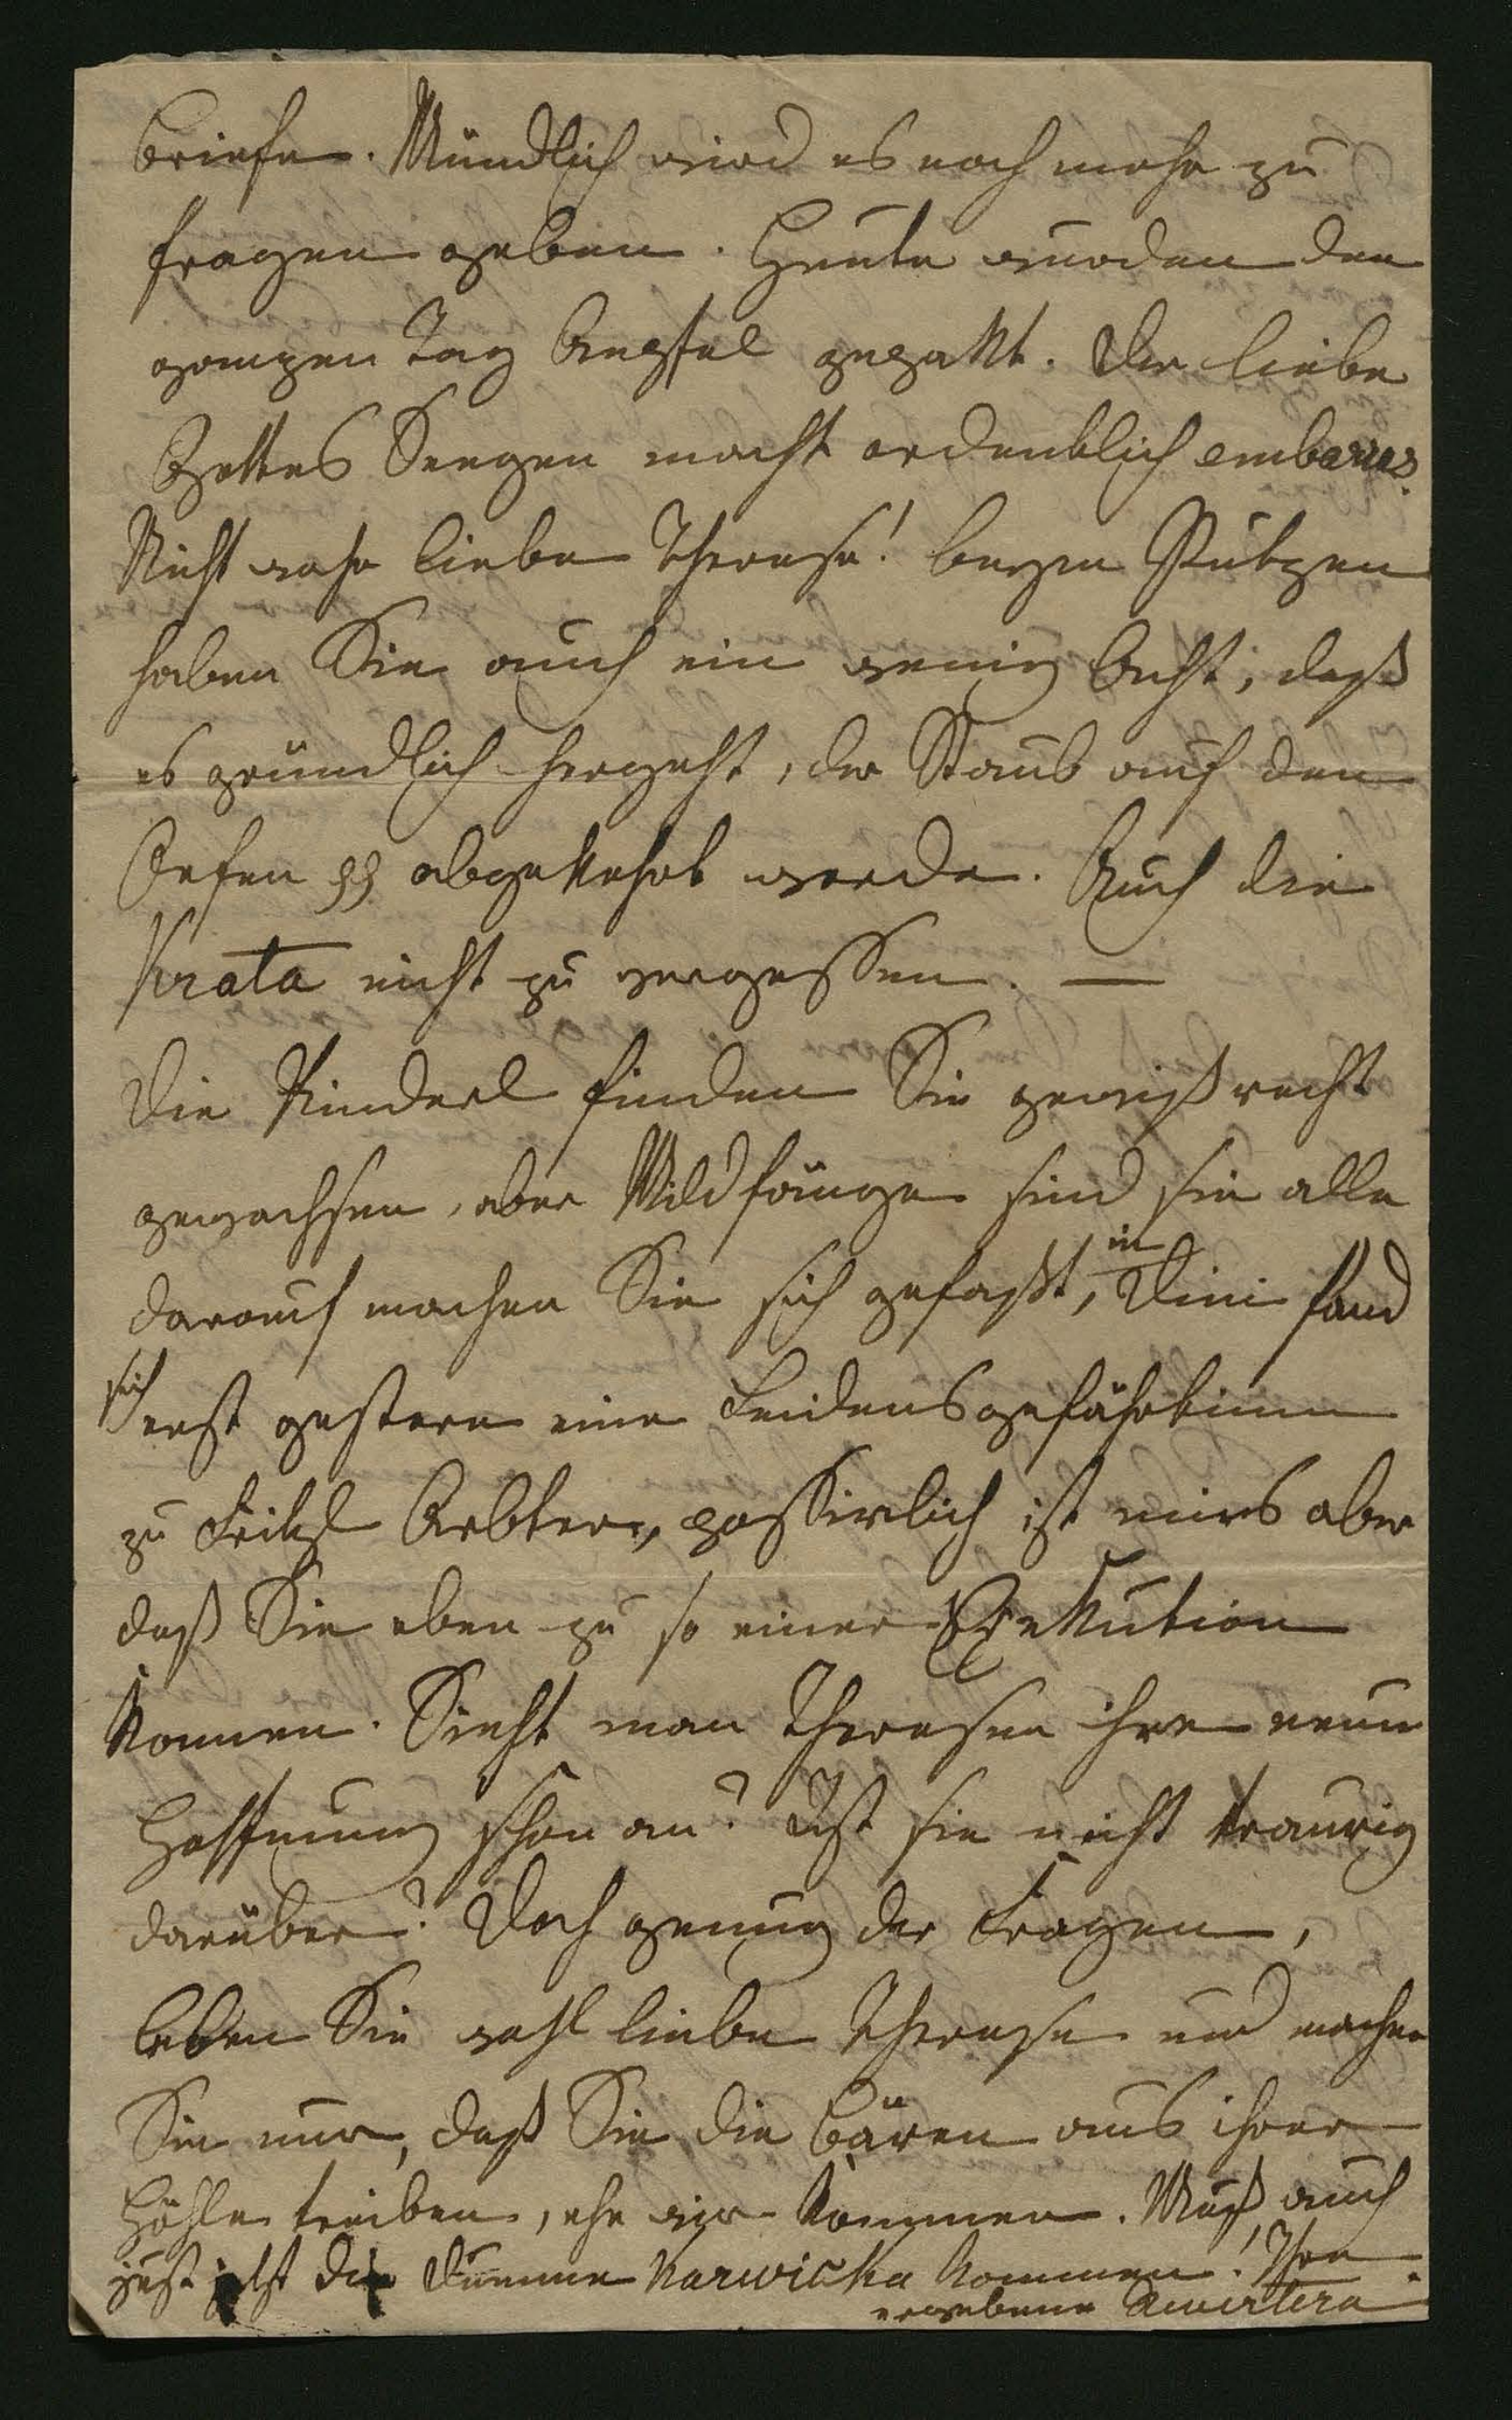 Briefe. Mündlich wird es noch mehr zu
fragen geben. Heute wurden den
ganzen Tag Aepfel gepakt. Der liebe
Gottes Seegen macht ordentlich embaras.
Nicht wahr liebe Therese! beym Putzen
haben Sie auch ein wenig Acht, daß
es gründlich hergeht, der Staub auf den
Oefen pp abgekehrt werde. Auch die
Vrata nicht zu vergessen. —
Die Kinderl finden Sie gewiß recht
gewachsen, aber Wildfänge sind sie alle
darauf machen Sie sich gefaßt, in Dini fand
sich erst gestern eine Leidensgefährtinn
zu Fritzl Aebter, possierlich ist mirs aber
daß Sie eben zu so einer Exekution
kommen. Sieht man Theresen ihre neue
Hoffnung schon an? Ist sie nicht traurig
darüber? Doch genug der Fragen,
leben Sie wohl liebe Therese und machen
Sie nur, daß Sie die Bären aus ihrer
Höhle treiben, ehe wir kommen. Muß auch
just jetzt die dumme Karwicka kommen! Ihre
ergebene